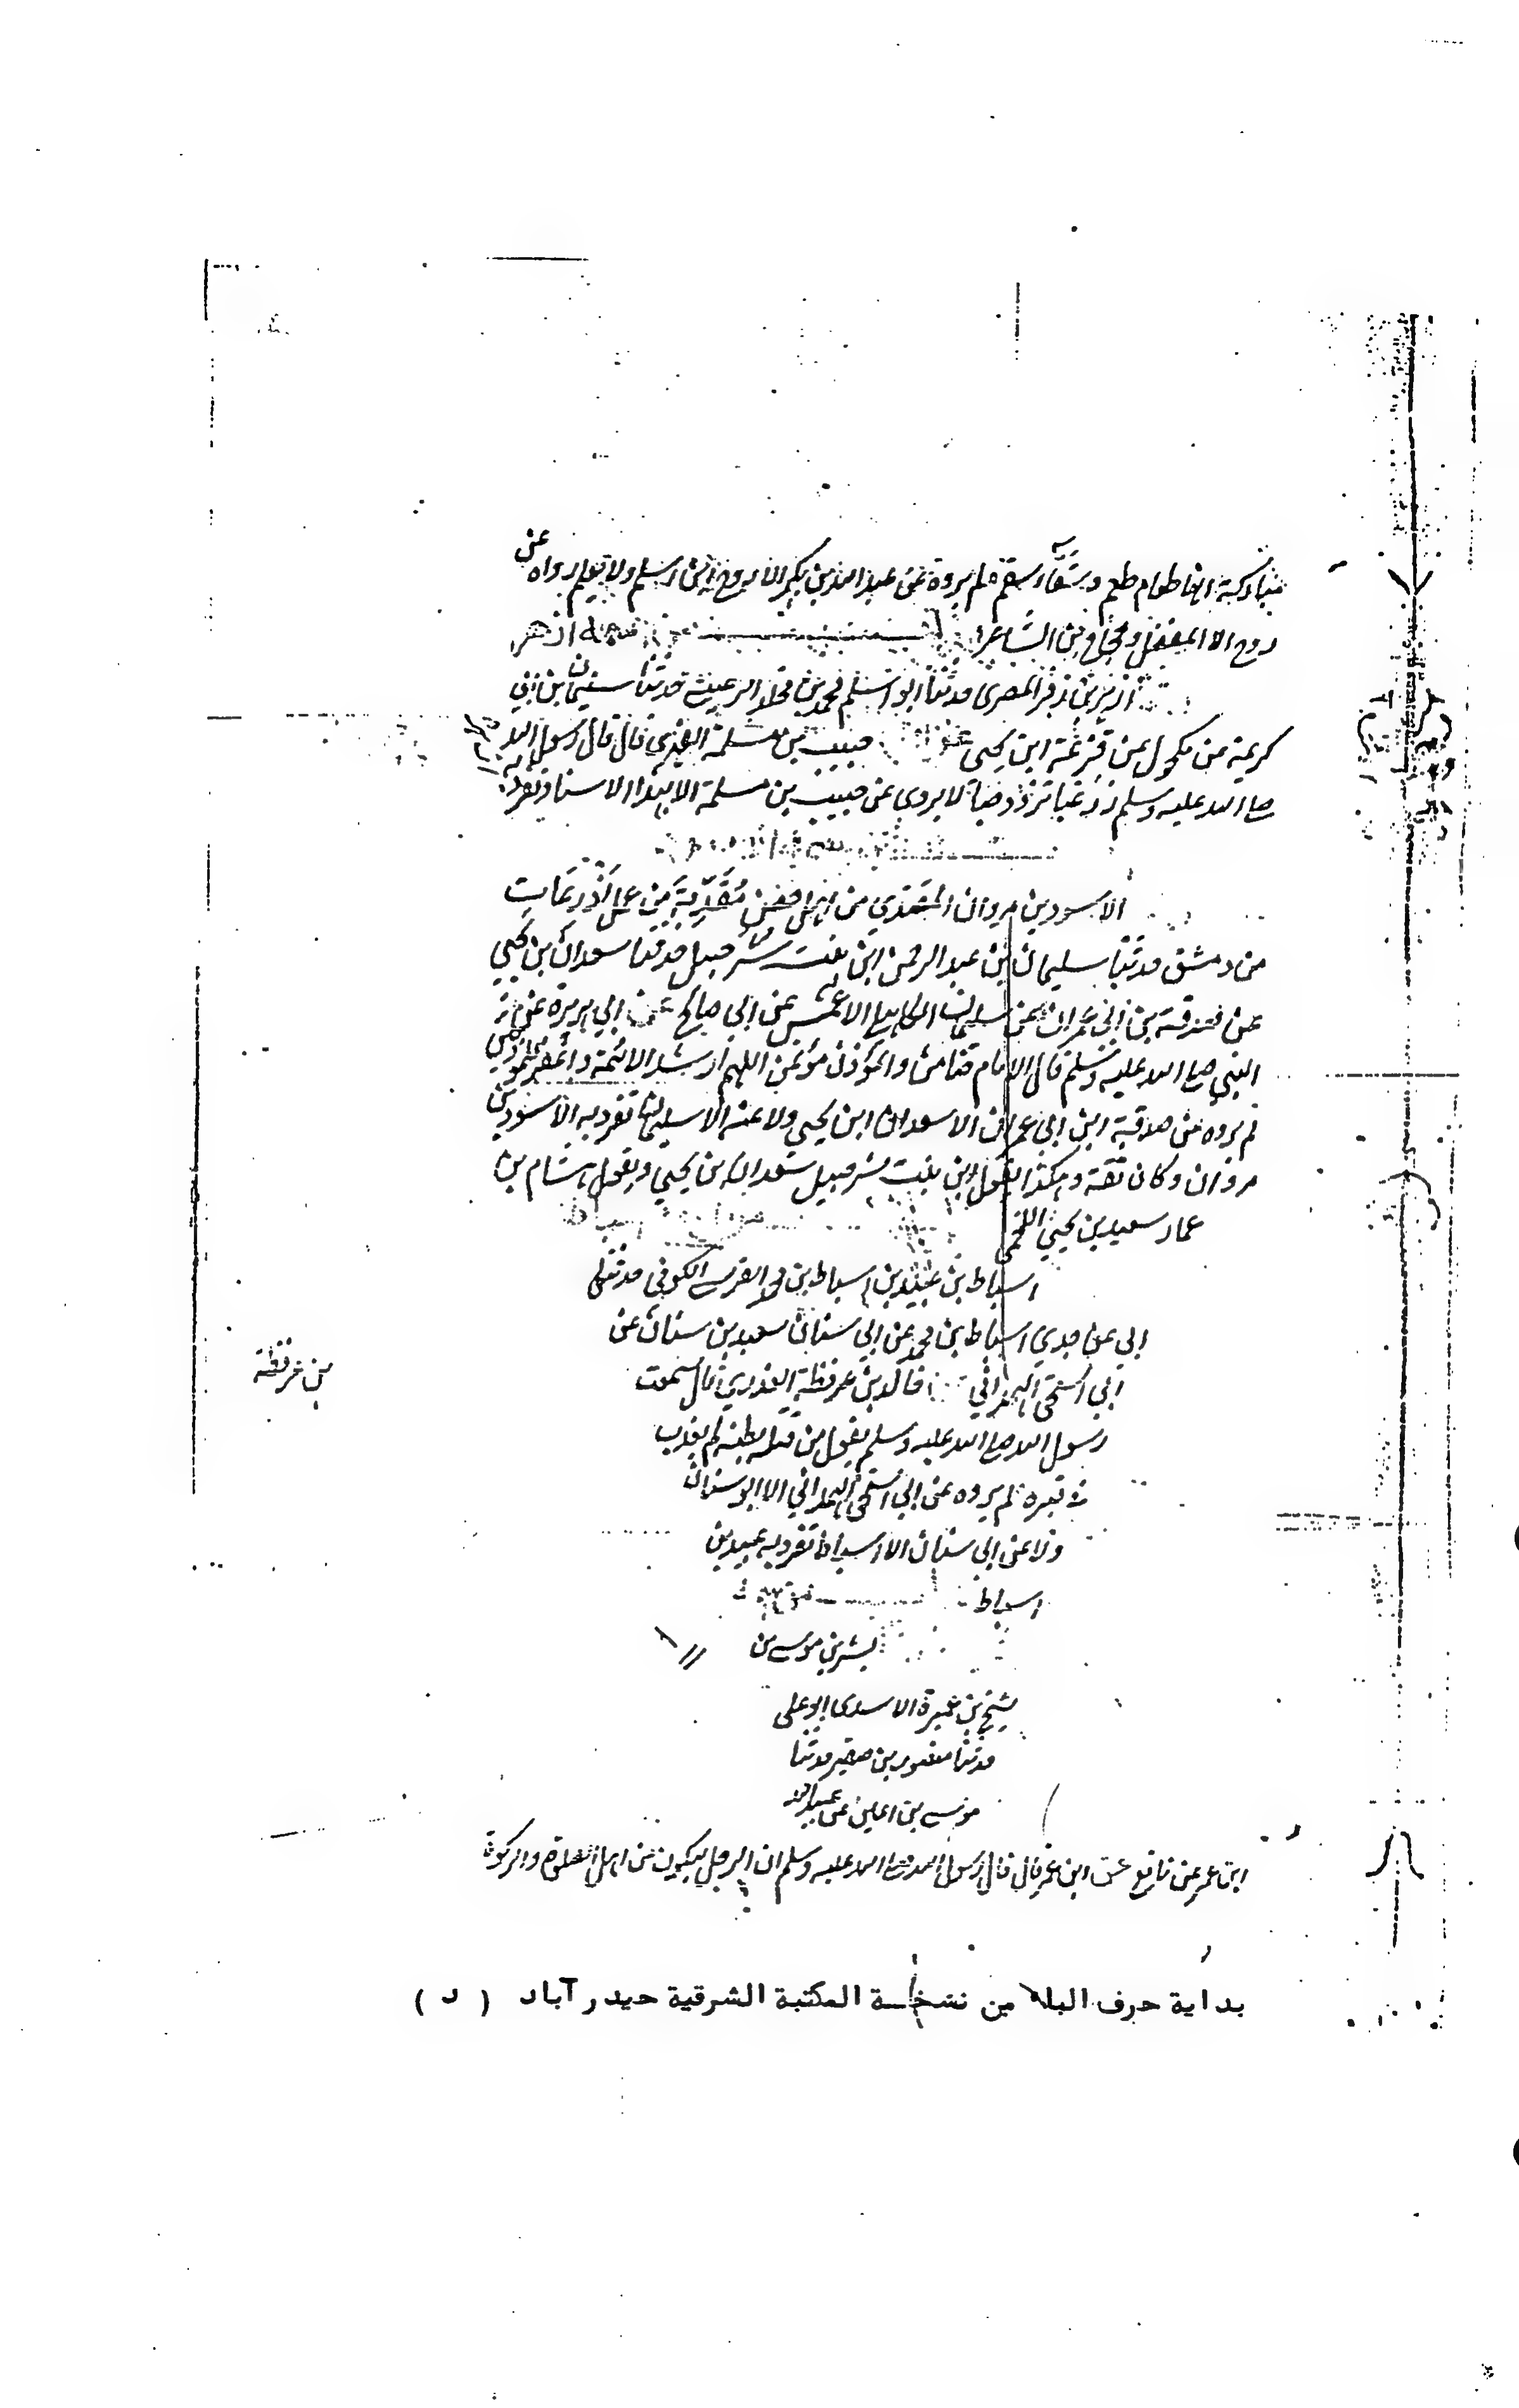 مباركة انها طعام طعم وشفاء سقم لم يروه عن عبد الله بن بكير الا روح بن اسلم ولا يعلم رواه عن
روح الا المفضل وحجاج بن الشاعر
ازهر بن زفر المصري حدثنا ابو اسلم محمد بن مخلد الرعيني حدثنا سليمان بن ابي
كريمة عن مكحول عن قزعة ابن يحيى عن حبيب بن مسلمة الفهري قال قال رسول الله
صلى الله عليه وسلم زر غبا تزدد حبا لا يروى عن حبيب بن مسلمة الا بهذا الاسناد تفرد به
الاسود بن مروان المقدي من اهل حصن مقدية من عمل اذرعات
من دمشق حدثنا سليمان بن عبد الرحمن ابن بنت شرحبيل حدثنا سعدان بن يحيى
عن صدقة بن ابي عمران عن سليمان الاعمش عن ابي صالح عن ابي هريرة عن
النبي صلى الله عليه وسلم قال الامام ضامن والمؤذن مؤتمن اللهم ارشد الائمة واغفر للمؤذنين
لم يروه عن صدقة ابن ابي عمران الا سعدان ابن يحيى ولا عنه الا سليمان تفرد به الاسود بن
مروان وكان ثقة وهكذا يقول ابن بنت شرحبيل سعدان بن يحيى ويقول هشام بن
عمار سعيد بن يحيى اللخمي
اسباط بن عبيد بن اسباط بن محمد القرشي الكوفي حدثنا
ابي عن جدي اسباط بن محمد عن ابي سنان سعيد بن سنان عن
ابي اسحق الهمداني خالد بن عرفطة العذري قال سمعت
بن عرفطة
رسول الله صلى الله عليه وسلم يقول من قتله بطنه لم يعذب
في قبره لم يروه عن ابي اسحق الهمداني الا ابو سنان
ولا عن ابي سنان الا اسباط تفرد به عبيد بن
اسباط
بشر بن موسى بن
شيخ بن عميرة الاسدي ابو علي
حدثنا منصور بن صقير حدثنا
موسى بن اعين عن عبيد الله
ابن عمر عن نافع عن ابن عمر قال قال رسول الله صلى الله عليه وسلم ان الرجل ليكون من اهل الصلوة والزكوة
بداية حرف الباء من نسخة المكتبة الشرقية حيدر آباد ( د )